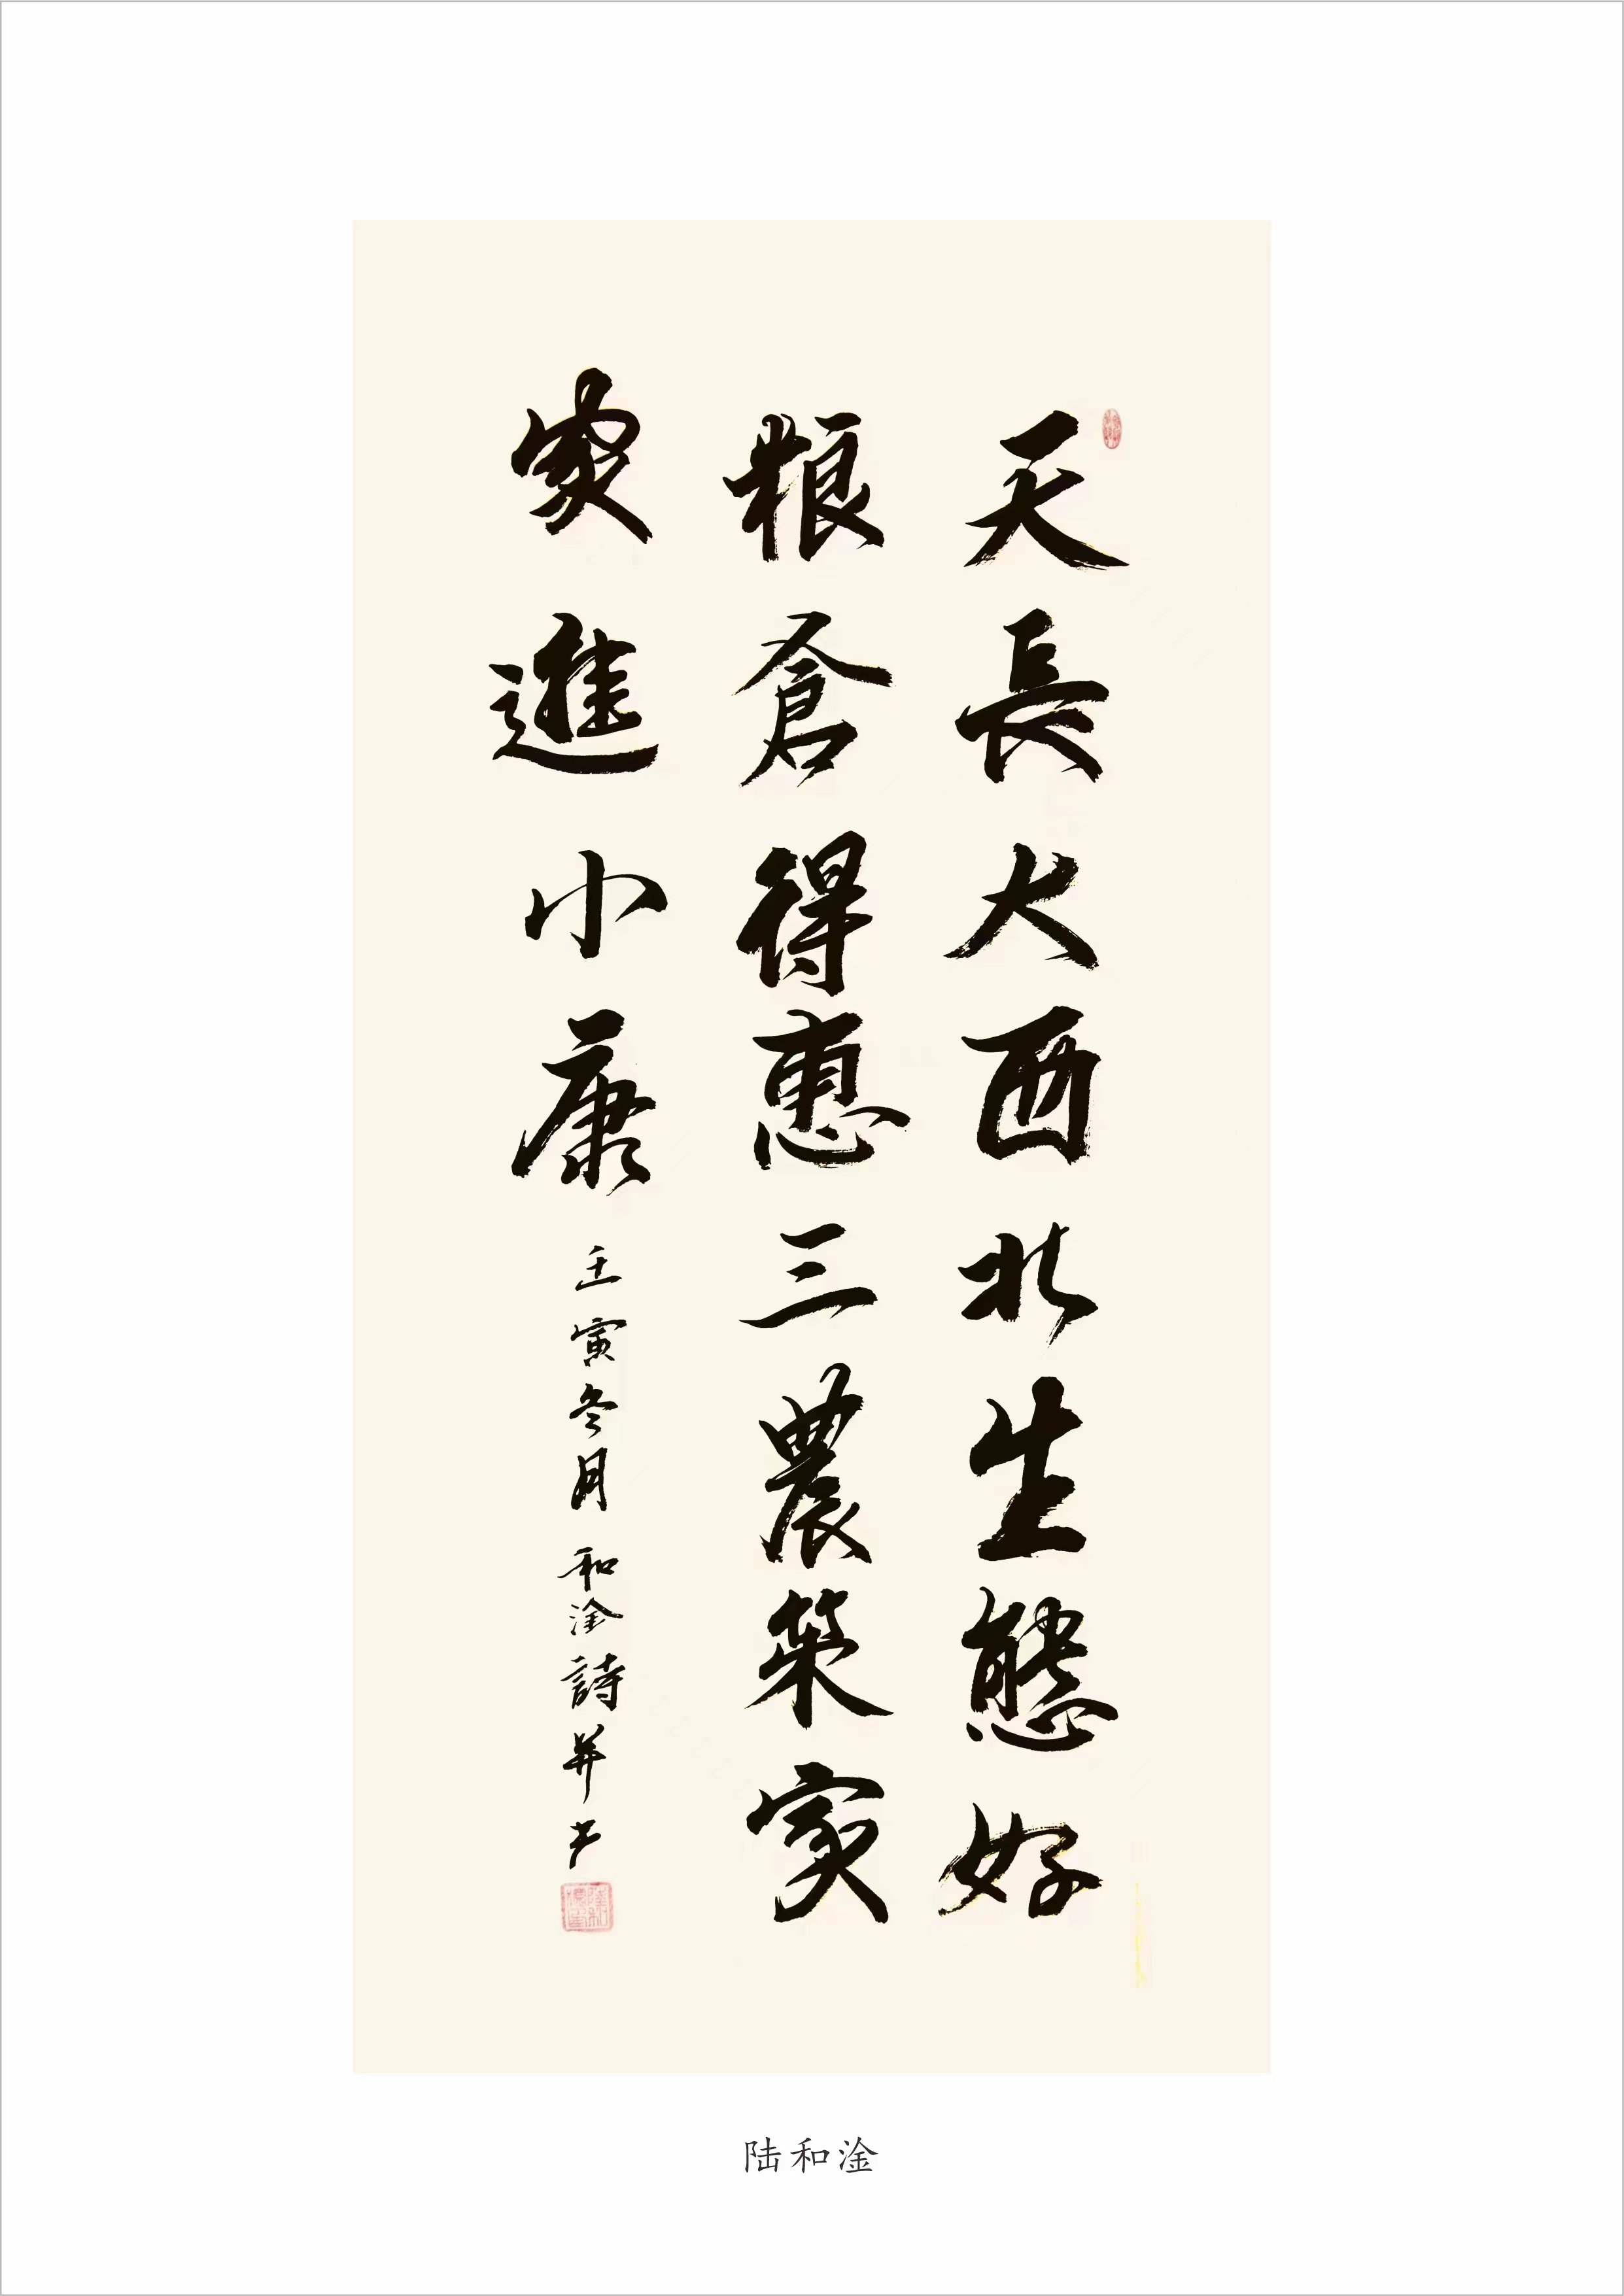 天長大西北生態好
粮倉得惠三農策家
家進小康
壬寅冬月和淦詩并书
陆和淦